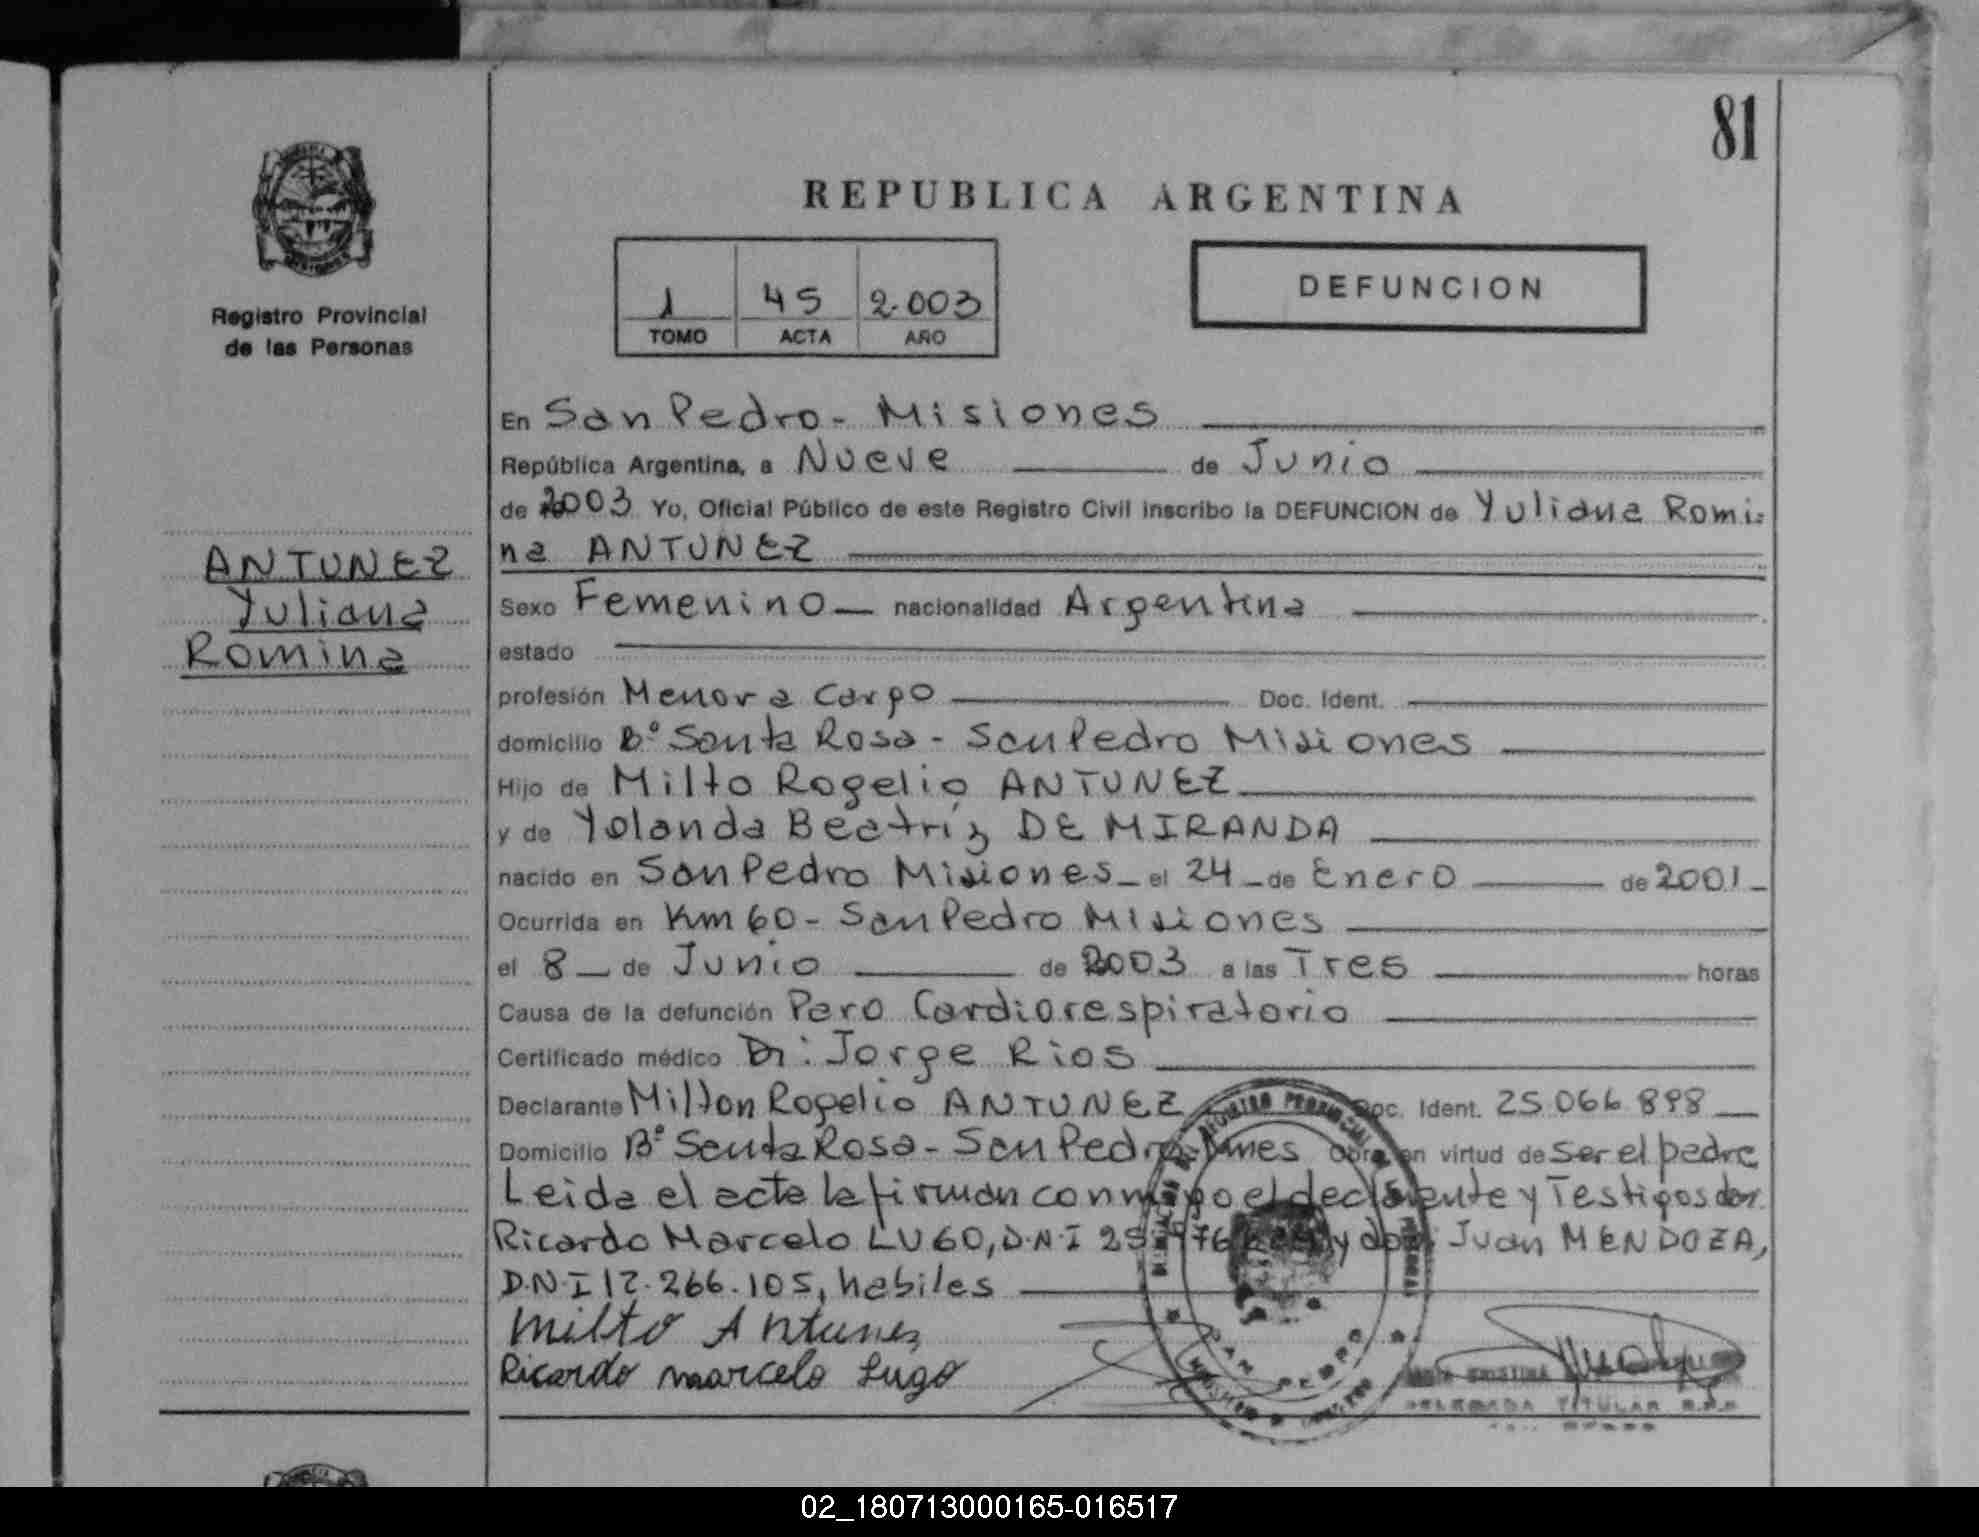 81
REPUBLICA ARGENTINA
1 45 2.003
TOMO ACTA AÑO
DEFUNCION
Registro Provincial
de las Personas
ANTUNEZ
Yuliana
Romina
En San Pedro - Misiones
República Argentina, a Nueve de Junio
de 2003 Yo, Oficial Público de este Registro Civil inscribo la DEFUNCION de Yuliana Romi-
na ANTUNEZ
Sexo Femenino nacionalidad Argentina
estado
profesión Menor a Cargo Doc. Ident.
domicilio Bº Santa Rosa - San Pedro Misiones
Hijo de Milto Rogelio ANTUNEZ
y de Yolanda Beatríz DE MIRANDA
nacido en San Pedro Misiones - el 24 - de Enero de 2001 -
Ocurrida en Km 60 - San Pedro Misiones
el 8 - de Junio de 2003 a las Tres horas
Causa de la defunción Paro Cardiorespiratorio
Certificado médico Dr: Jorge Rios
Declarante Milton Rogelio ANTUNEZ Doc. Ident. 25.066.898
Domicilio Bº Santa Rosa - San Pedro Mnes Obra en virtud de ser el padre
Leida el acta la firman conmigo el declarante y Testigos don
Ricardo Marcelo LUGO, D.N.I y don Juan MENDOZA,
D.N.I 12.266.105, habiles
Milto Antunez
Ricardo marcelo Lugo
REGISTRO PROVINCIAL
SAN PEDRO
DELEGADA TITULAR R.P.P
02_180713000165-016517